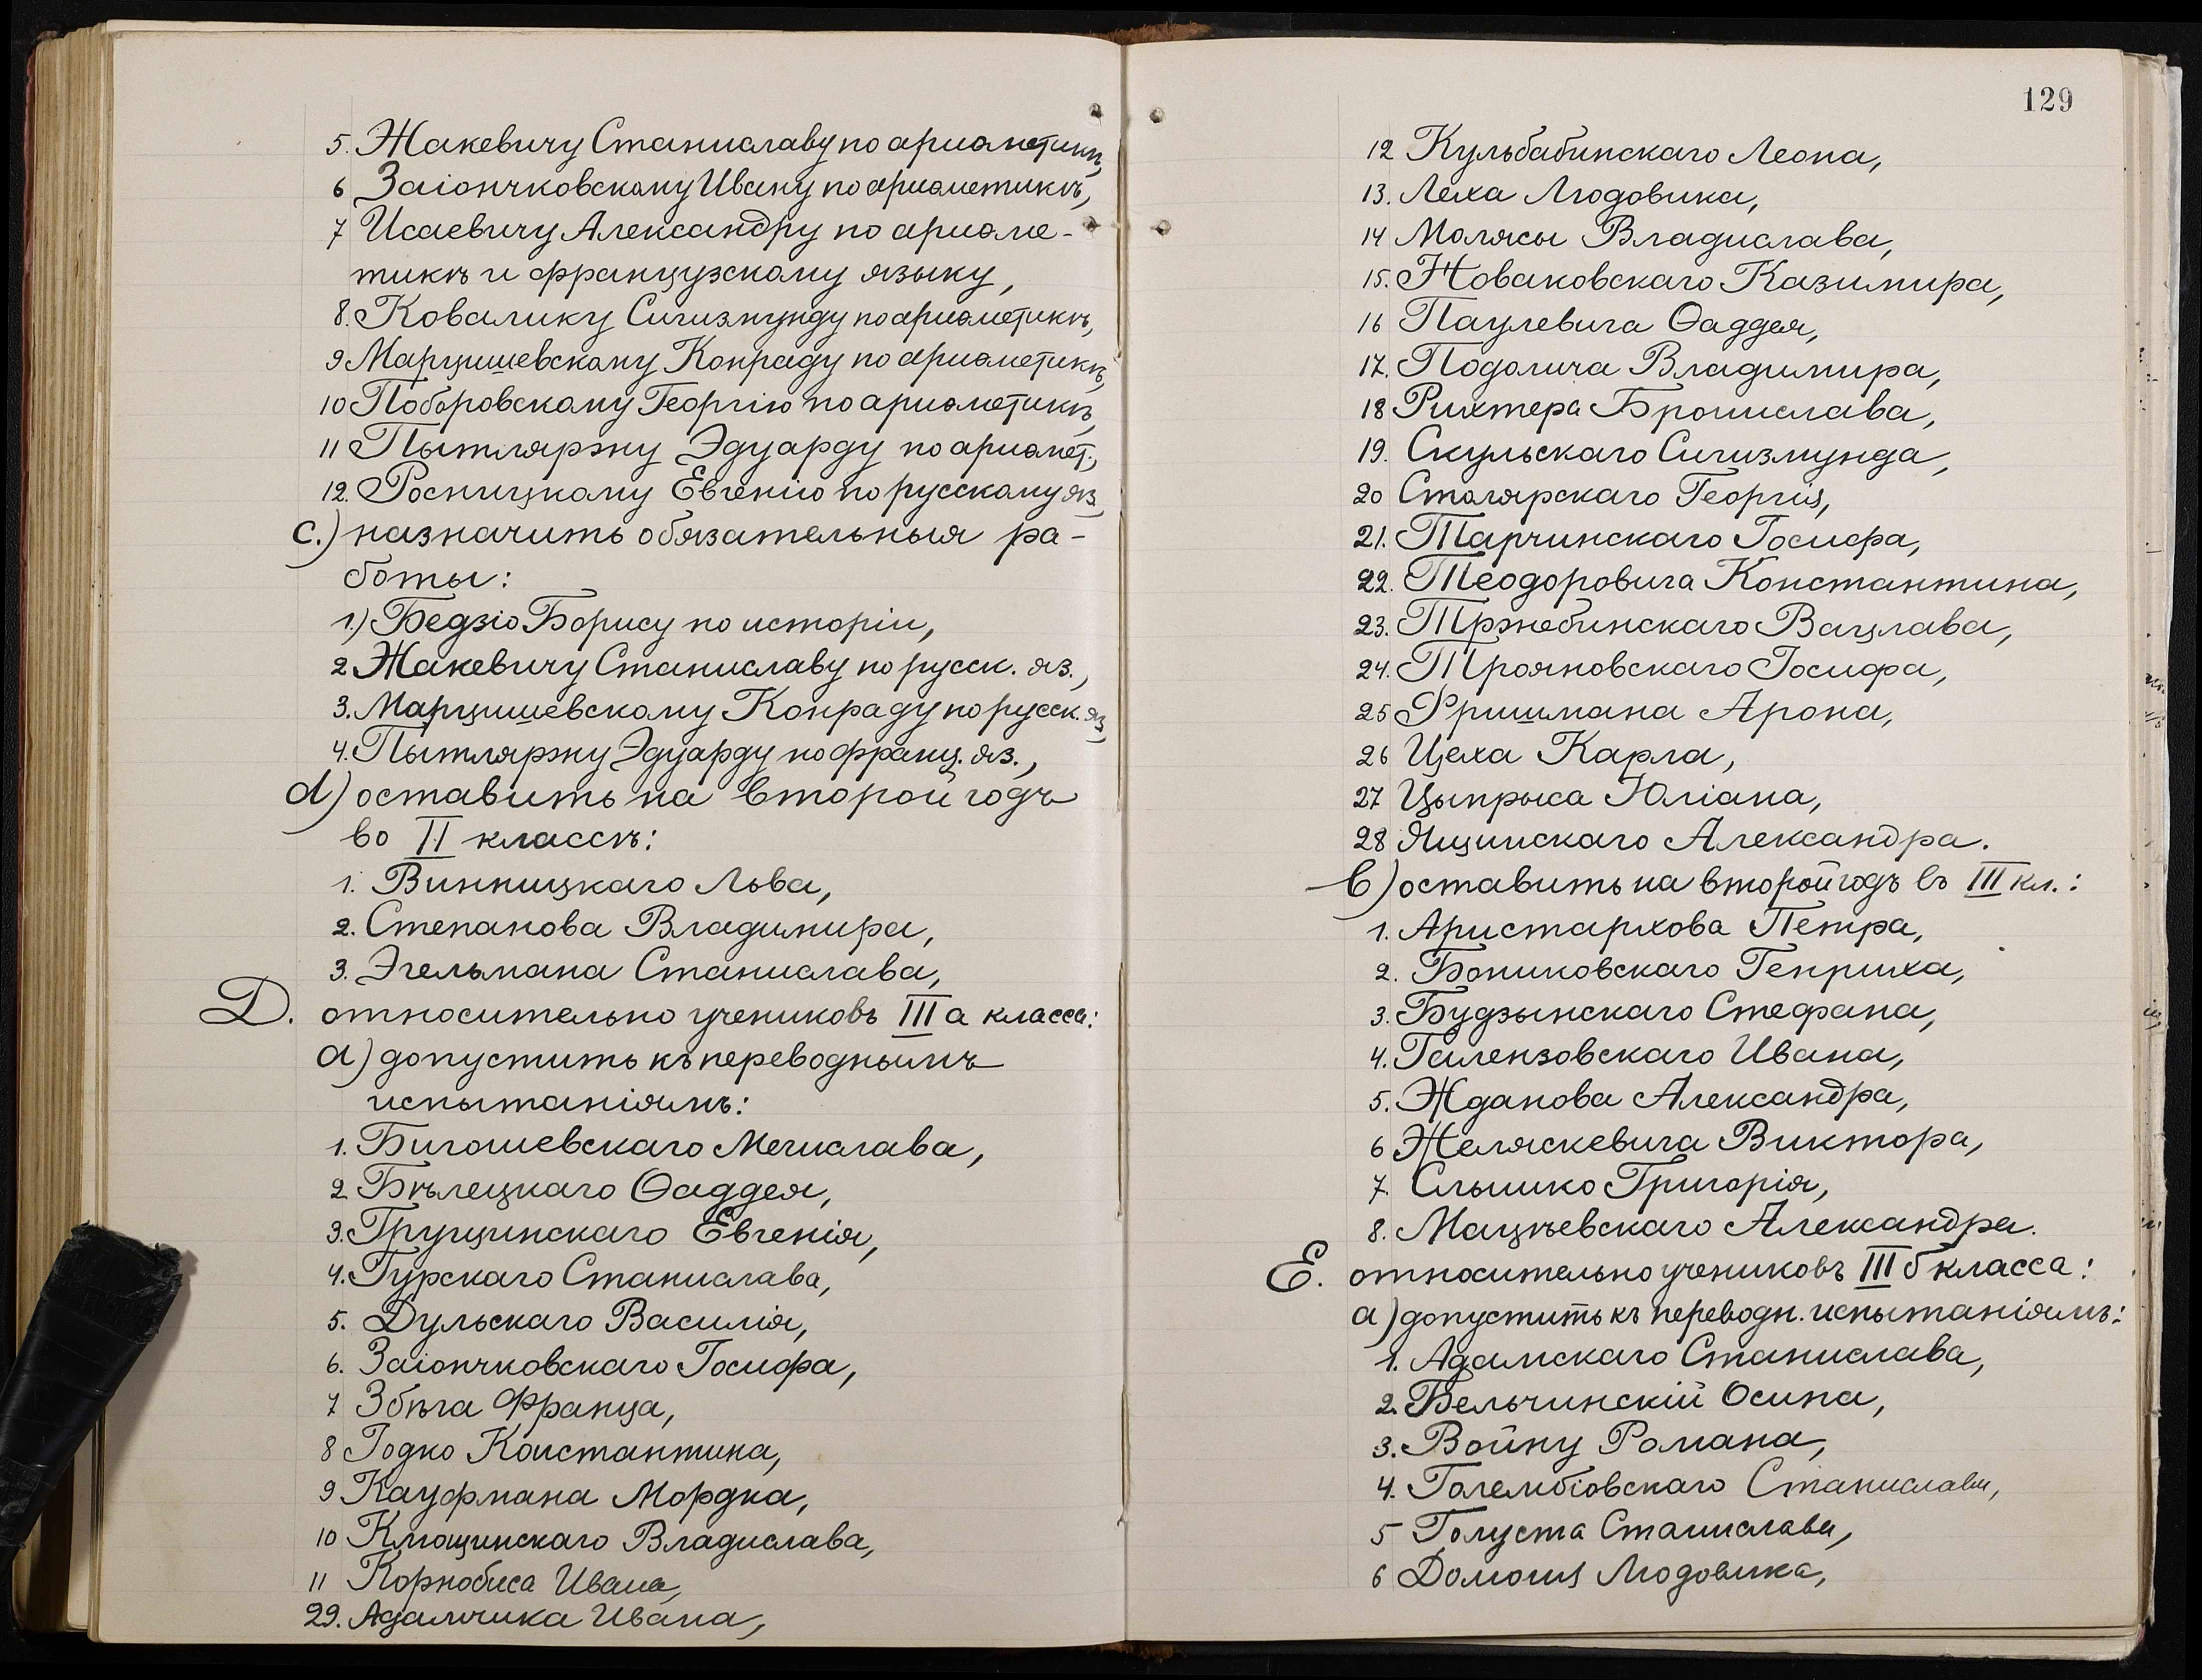 5. Жакевичу Станиславу по ариѳметикѣ,
6 Заіончковскому Ивану по ариѳметикѣ,
7 Исаевичу Александру по ариѳме-
тикѣ и французскому языку,
8. Ковалику Сигизмунду по ариѳметикѣ,
9 Марцишевскому Конраду по ариѳметикѣ,
10 Поборовскому Георгію по ариѳметикѣ,
11 Пытляржу Эдуарду по ариѳмет.,
12. Росницкому Евгенію по русскому яз,
с.) назначить обязательныя ра-
боты:
1.) Бедзіо Борису по исторіи,
2 Жакевичу Станиславу по русск. яз.,
3. Марцишевскому Конраду по русск. яз,
4. Пытляржу Эдуарду по франц. яз.,
d) оставить на второй годъ
во II классѣ:
1. Винницкаго Льва,
2. Степанова Владимира,
3. Эгельмана Станислава,
D. относительно учениковъ III а класса:
а) допустить къ переводнымъ
испытаніямъ:
1. Бигошевскаго Мечислава,
2 Бѣлецкаго Ѳаддея,
3. Грущинскаго Евгенія,
4. Гурскаго Станислава,
5. Дульскаго Василія,
6. Заіончковскаго Іосифа,
7 Збѣга Франца,
8 Іодко Константина,
9 Кауфмана Мордка,
10 Клющинскаго Владислава,
11 Корнобиса Ивана,
29. Адамчика Ивана,
129
12 Кульбабинскаго Леона,
13. Леха Людовика,
14 Молясы Владислава,
15. Новаковскаго Казимира,
16 Паулевича Ѳаддея,
17. Подолича Владимира,
18 Рихтера Бронислава,
19. Скульскаго Сигизмунда,
20 Столярскаго Георгія,
21. Тарчинскаго Іосифа,
22. Теодоровича Константина,
23. Тржебинскаго Вацлава,
24. Трояновскаго Іосифа,
25 Фришмана Арона,
26 Цеха Карла,
27 Цыпрыса Юліана,
28 Ящинскаго Александра.
b) оставить на второй годъ въ III кл.:
1. Аристархова Петра,
2. Бониковскаго Генриха,
3. Будзынскаго Стефана,
4. Галензовскаго Ивана,
5. Жданова Александра,
6 Желяскевича Виктора,
7. Слышко Григорія,
8. Мацѣевскаго Александра.
Е. относительно учениковъ III б класса:
а) допустить къ переводн. испытаніямъ:
1. Адамскаго Станислава,
2. Бельчинскій Осипа,
3. Войну Романа,
4. Голембіовскаго Станислава,
5 Голуста Станислава,
6 Доморя Людовика,